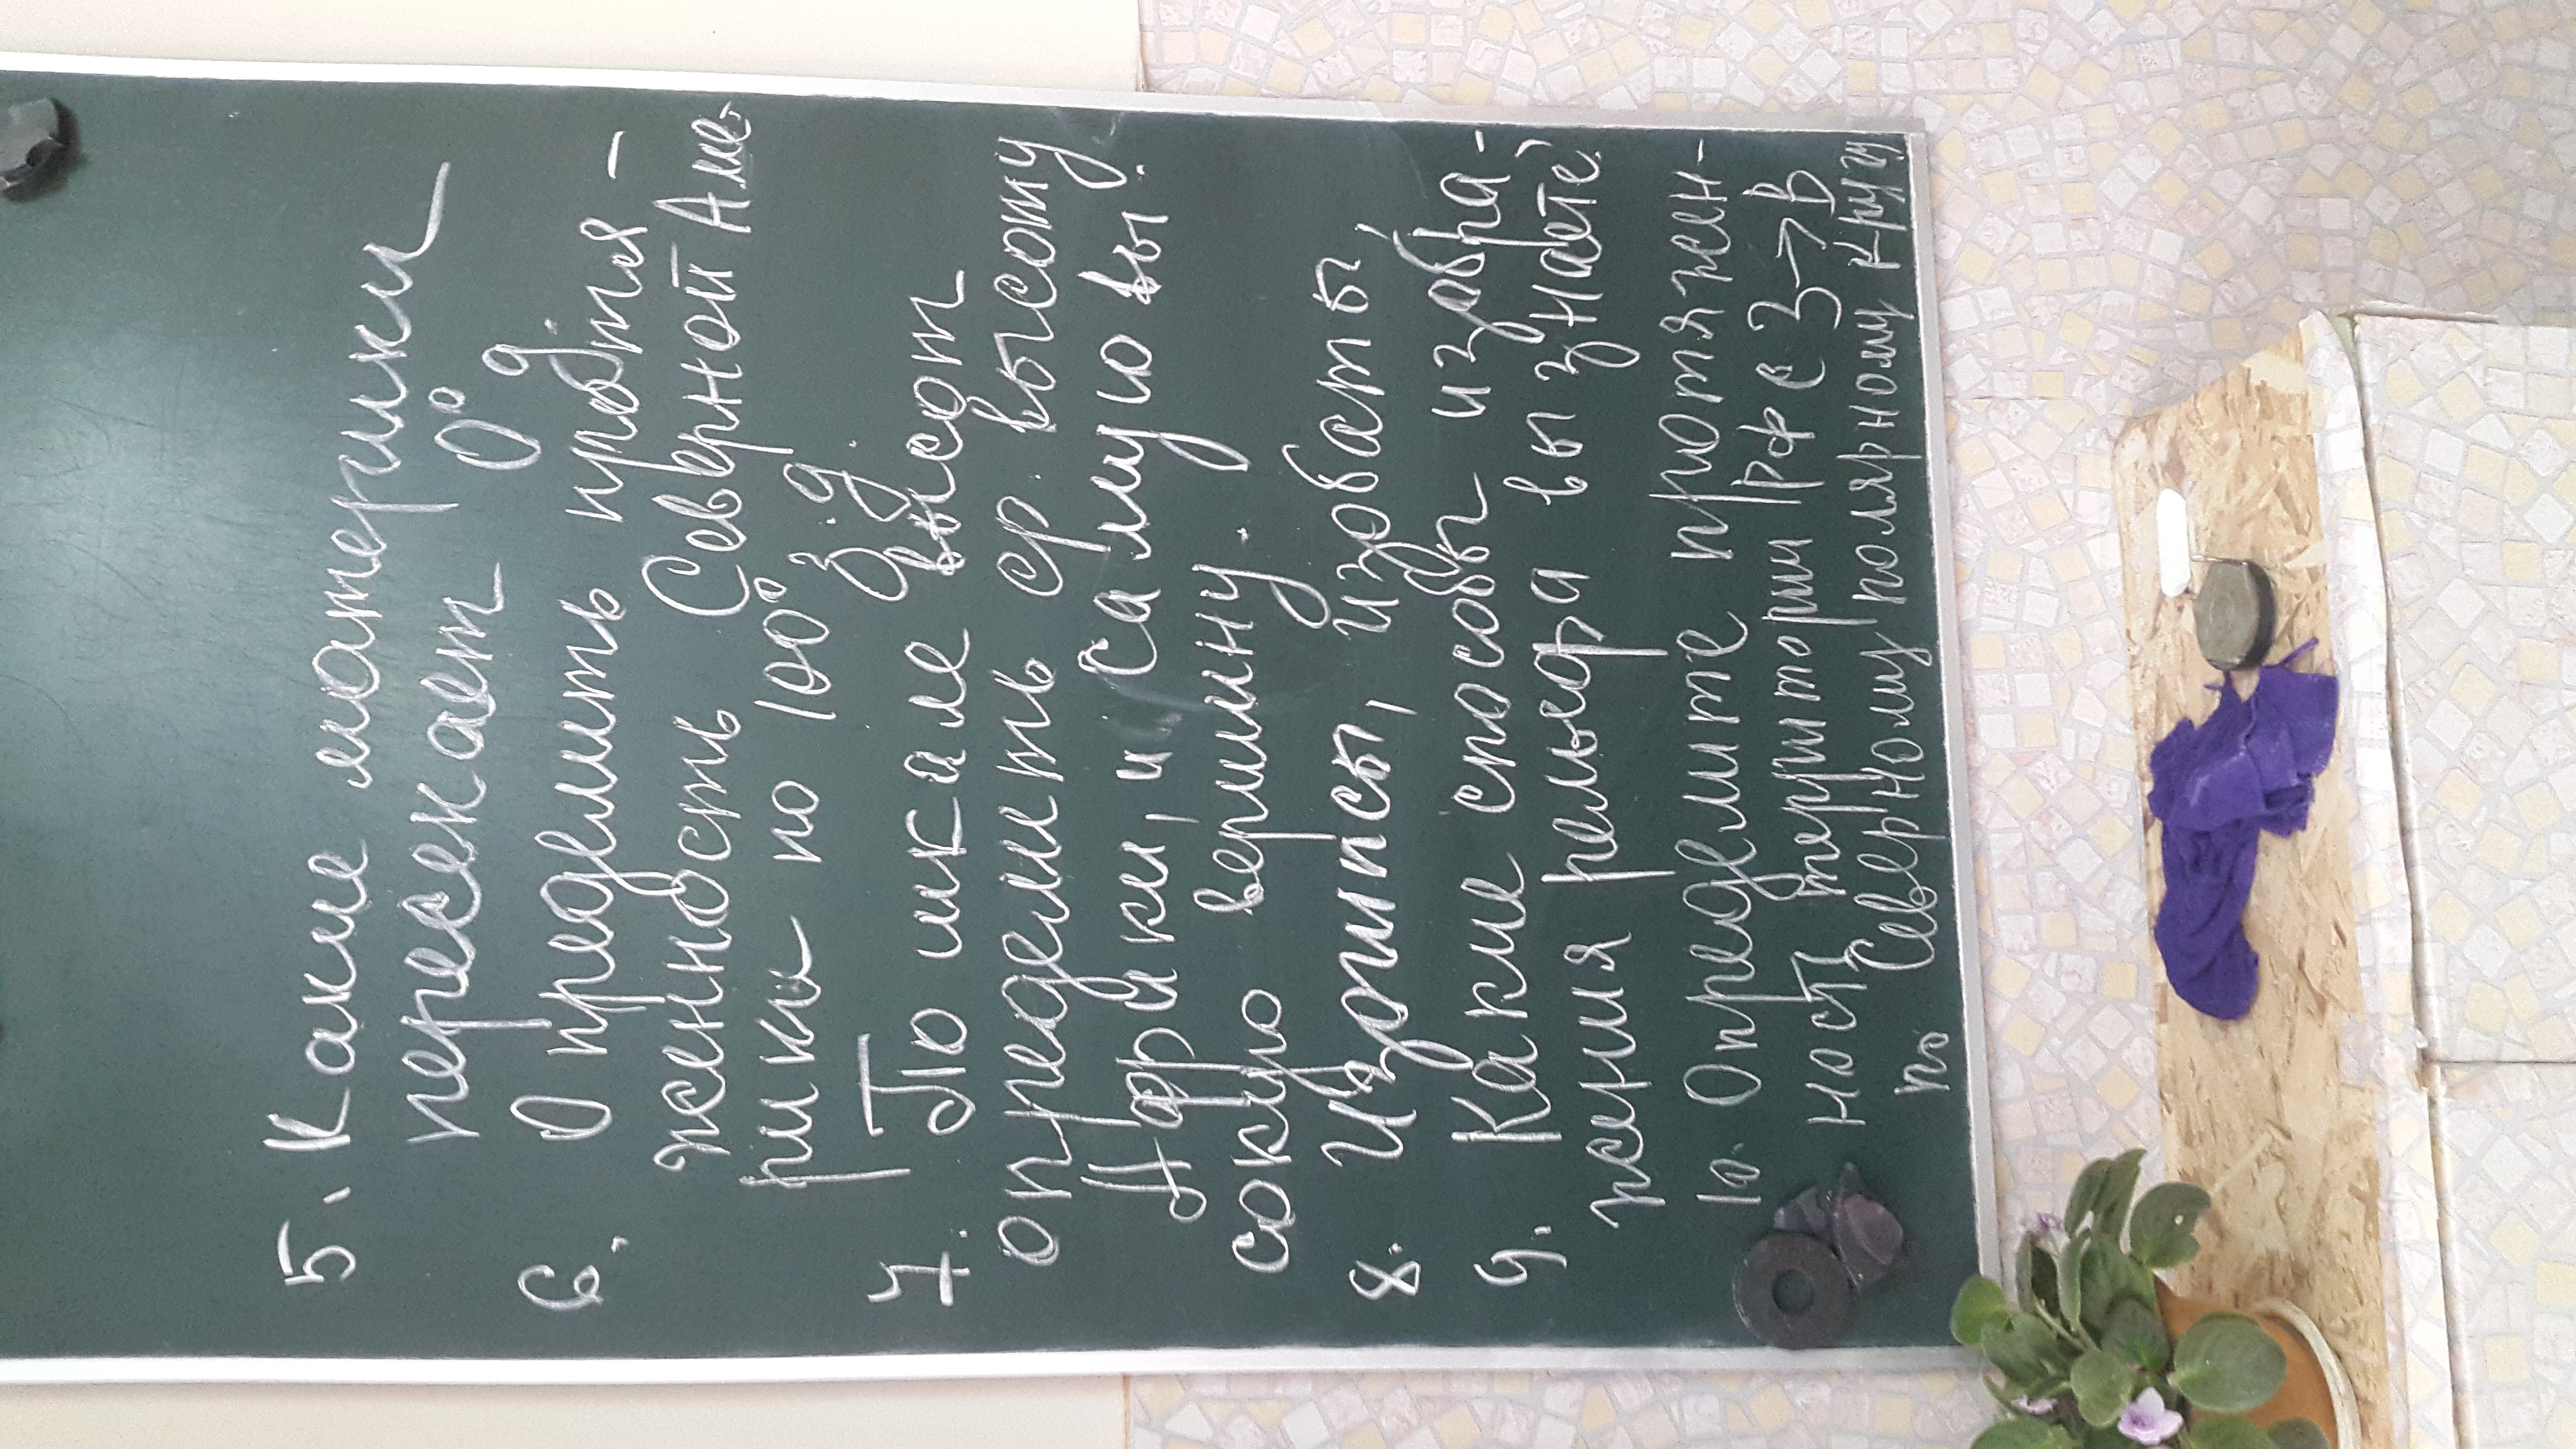 5. Какие материки
пересекает 0° д
6. Определить протя-
женность Северной Аме-
рики по 100° з.д.
7. По шкале высот
определить ср. высоту
Африки, и самую вы
сокую вершину.
8. Изогипсы, изобаты,
9. Какие способы изобра-
жения рельефа вы знаете?
10. Определите протяжен-
ность территории РФ с З→В
по Северному полярному кругу